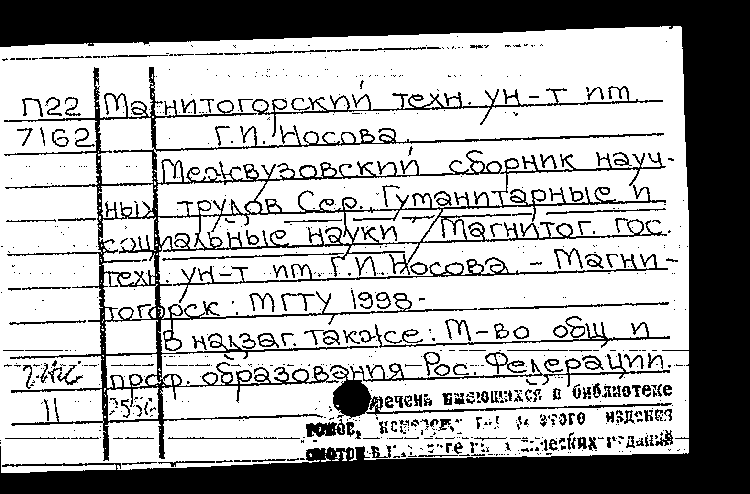 П22 Магнитогорский техн. ун-т им
7162 Г.И. Носова.
Межвузовский сборник науч-
ных трудов Сер. Гуманитарные и
социальные науки Магнитог. гос.
техн. ун-т им. Г.И. Носова. - Магни-
тогорск : МГТУ 1998-
В надзаг. также: М-во общ и
проф. образования Рос. Федерации.
11 2556 Перечень имеющихся в библиотеке
томов, этого издания
смотри в изданий